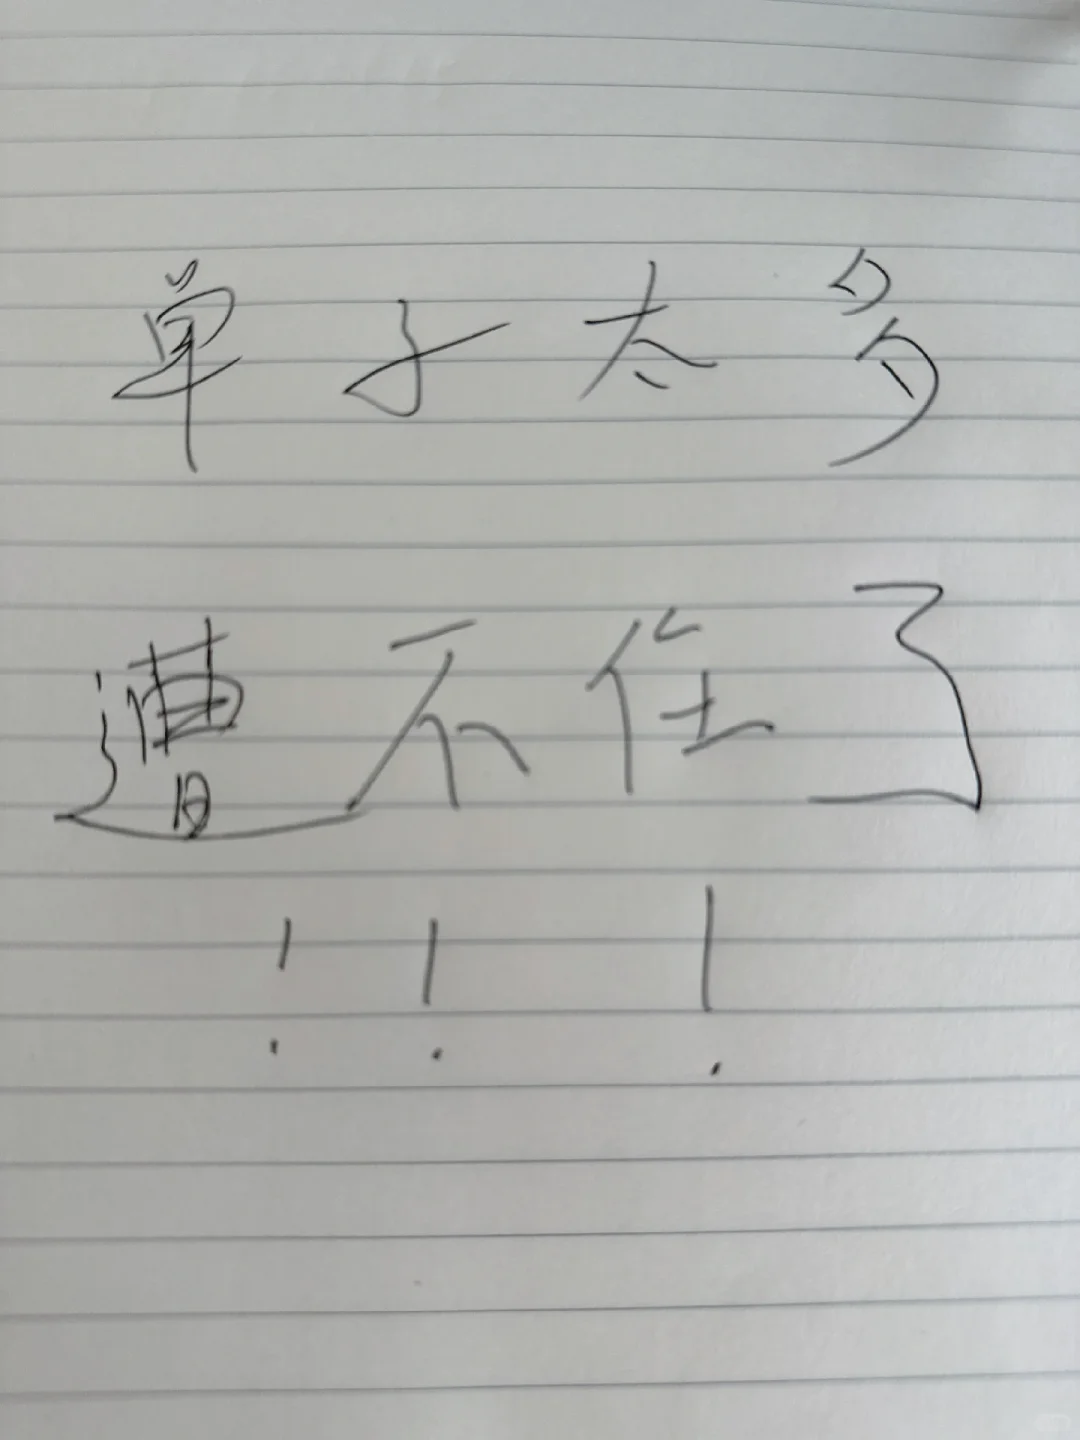 单子太多
遭不住了
!!!